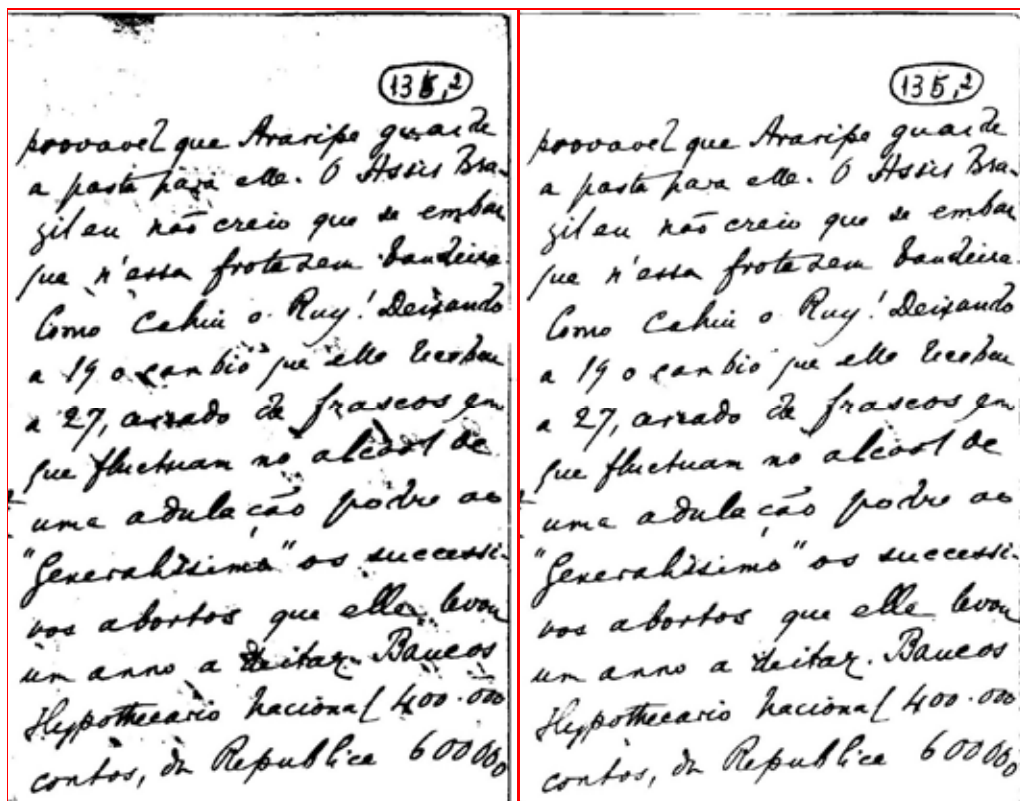 135,2
provavel que Araripe guarde
a pasta para elle. O Assis Bra-
zil eu não creio que se embar
que n'essa frota sem bandeira.
Como cahiu o Ruy! Deixando
a 19 o cambio que elle recebeu
a 27, de frascos em
que fluctuam no alcool de
uma adulação podre ao
"Generalissimo" os successi-
vos abortos que elle levou
um anno a deitar. Bancos
Hypothecario Nacional 400.000
contos, da Republica 600000
135,2
provavel que Araripe guarde
a pasta para elle. O Assis Bra-
zil eu não creio que se embar
que n'essa frota sem bandeira.
Como cahiu o Ruy! Deixando
a 19 o cambio que elle recebeu
a 27, de frascos em
que fluctuam no alcool de
uma adulação podre ao
"Generalissimo" os successi-
vos abortos que elle levou
um anno a deitar. Bancos
Hypothecario Nacional 400.000
contos, da Republica 600000